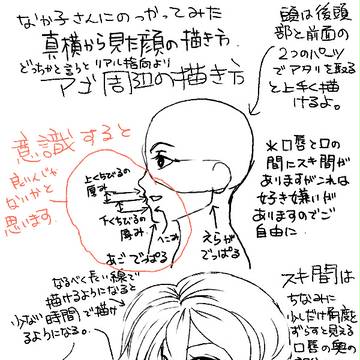 なか子さんにのっかってみた
真横から見た顔の描き方
どっちかと言うとリアル指向より
アゴ周辺の描き方
頭は後頭
部と前面の
2つのパーツ
でアタリを取る
と上手く描
けるよ。
意識すると
良いんじゃ
ないかと
思います。
上くちびるの
厚み
下くちびるの
厚み
へこみ
あごでっぱる
えらが
でっぱる
*口唇と口の
間にスキ間が
ありますがこれは
好き嫌いが
ありますのでご
自由に。
なるべく長い線で
描けるようになると
少ない時間で描け
るようになる。
スキ間は
ちなみに
少しだけ角度を
ずらすと見える
口唇の奥の